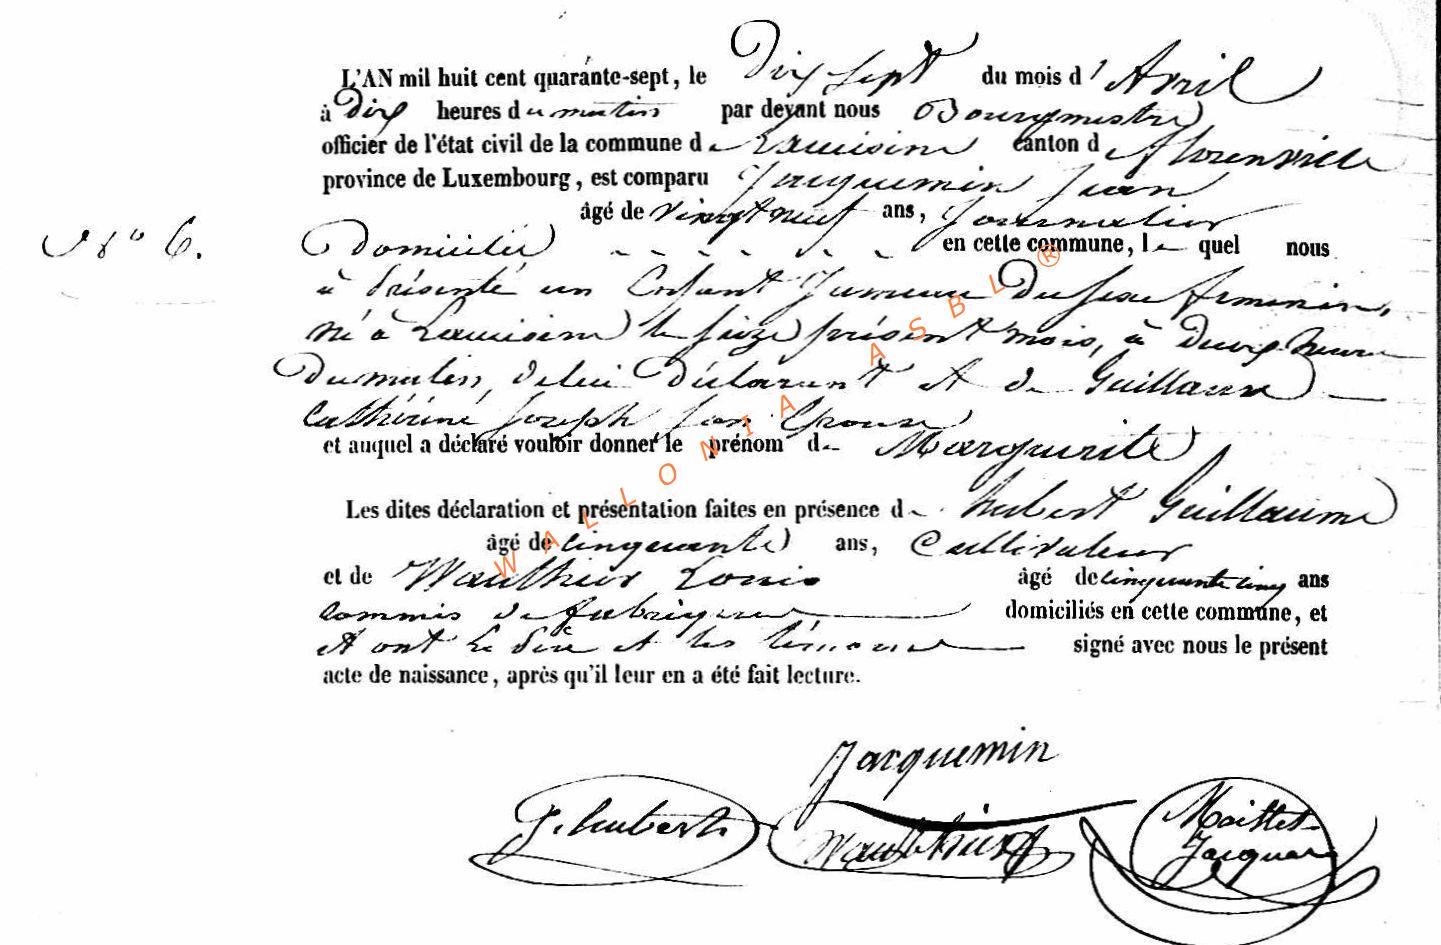 L'AN mil huit cent quarante-sept, le Dix sept du mois d' Avril
à Dix heures du matin par devant nous Bourgmestre
officier de l'état civil de la commune de Lacuisine canton de Florenville
province de Luxembourg, est comparu Jacquemin Jean
âgé de vingt neuf ans, Journalier
N° 6.
Domicilié en cette commune, le quel nous
à présenté un Enfant Jumeau Du sexe feminin,
né à Lacuisine le seize présent mois, à Deux heures
Du matin, de lui Déclarant et de Guillaume
Cathérine Joseph son Epouse
et auquel a déclaré vouloir donner le prénom de Marguerite
Les dites déclaration et présentation faites en présence de hubert Guillaume
âgé de cinquante ans, Cultivateur
et de Wauthier Louis âgé de cinquante cinq ans
commis de fabrique domiciliés en cette commune, et
et ont le Père et les témoins signé avec nous le présent
acte de naissance, après qu'il leur en a été fait lecture.
Jacquemin
G. hubert Wauthier Maillet-
Jacquart
WALLONIA ASBL ®